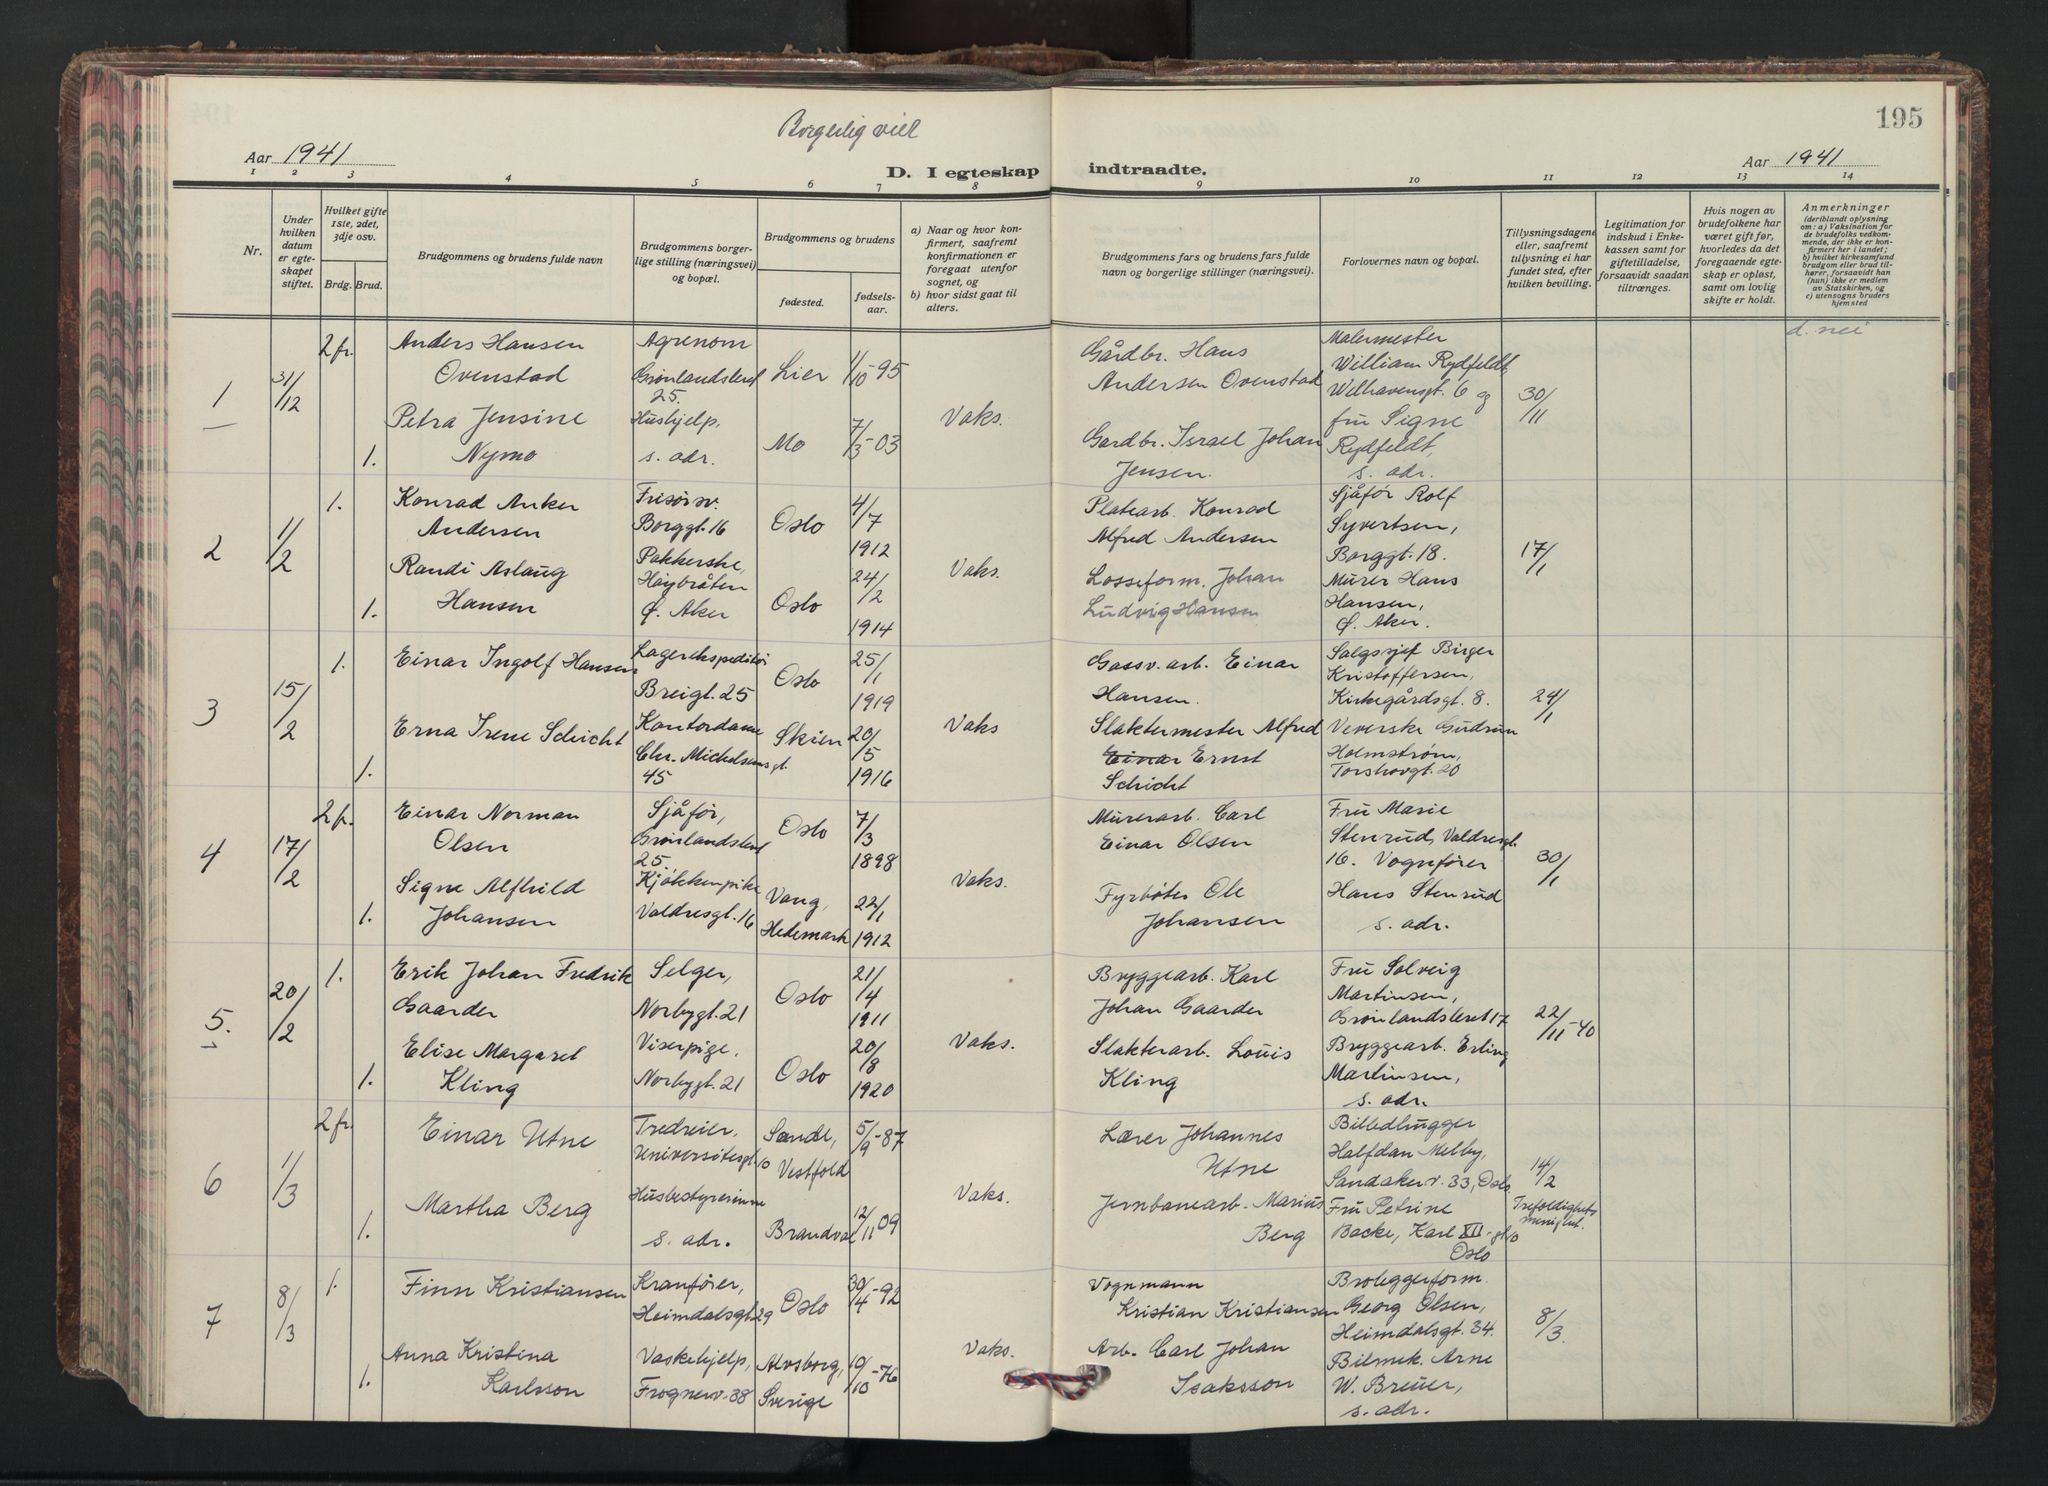 Borgerlig viet
195
Aar 1941
D. I egteskap indtraadte.
Aar 1941
1 2 3 4 5 6 7 8 9 10 11 12 13 14
Nr.
Under hvilken datum er egteskapet stiftet.
Hvilket gifte 1ste, 2det, 3dje osv.
Brdg. Brud.
Brudgommens og brudens fulde navn
Brudgommens borgerlige stilling (næringsvei) og bopæl.
Brudgommens og brudens
fødested.
fødselsaar.
a) Naar og hvor konfirmert, saafremt konfirmationen er foregaat utenfor sognet, og
b) hvor sidst gaat til alters.
Brudgommens fars og brudens fars fulde navn og borgerlige stillinger (næringsvei).
Forlovernes navn og bopæl.
Tillysningsdagene eller, saafremt tillysning ei har fundet sted, efter hvilken bevilling.
Legitimation for indskud i Enkekassen samt for giftetilladelse, forsaavidt saadan tiltrænges.
Hvis nogen av brudefolkene har været gift før, hvorledes da det foregaaende egteskap er opløst, samt om lovlig skifte er holdt.
Anmerkninger
(deriblandt oplysning om: a) Vaksination for de brudefolks vedkommende, der ikke er konfirmert her i landet; b) hvilket kirkesamfund brudgom eller brud tilhører, forsaavidt han (hun) ikke er medlem av Statskirken, og c) utensogns bruders hjemsted
1
31/12
2 fr.
Anders Hansen
Ovenstad
Agronom
Grønlandsleret
25.
Lier
1/10-95
Gårdbr. Hans
Andersen Ovenstad
Malermester
William Rydfeldt,
Welhavensgt. 6 og
fru Signe
Rydfeldt,
s. adr.
30/11
d. nei
1.
Petra Jensine
Nymo
Hushjelp,
s. adr.
Mo
7/3-03
Vaks.
Gardbr. Israel Johan
Jensen.
2
1/2
1.
Konrad Anker
Andersen
Frisørsv.
Borggt. 16
Oslo
4/7
1912
Platearb. Konrad
Alfred Andersen
Sjåfør Rolf
Syvertsen,
Borggt. 18.
17/1
1.
Randi Aslaug
Hansen
Pakkerske,
Høybråten
Ø. Aker
Oslo
24/2
1914
Vaks.
Losseform. Johan
Ludvig Hansen
Murer Hans
Hansen,
Ø. Aker.
3
15/2
1.
Einar Ingolf Hansen
Lagerekspeditør
Breigt. 25
Oslo
25/1
1919
Gassv. arb. Einar
Hansen.
Salgssjef Birger
Kristoffersen,
Kirkegårdsgt. 8.
24/1
1.
Erna Irene Schicht
Kontordame
Chr. Michelsensgt.
45
Skien
20/5
1916
Vaks
Slaktermester Alfred
Einar Ernst
Schicht
Veverske Gudrun
Holmstrøm,
Torshovgt. 20
4
17/2
2 fr.
Einar Norman
Olsen
Sjåfør,
Grønlandsleret
25.
Oslo
7/3
1898
Murerarb. Carl
Einar Olsen
Fru Marie
Stenrud, Valdresgt.
16. Vognfører
Hans Stenrud
s. adr.
30/1
1.
Signe Alfhild
Johansen
Kjøkkenpike
Valdresgt. 16
Vang,
Hedemark
22/1
1912
Vaks.
Fyrbøter Ole
Johansen
5.
20/2
1.
Erik Johan Fredrik
Gaarder
Selger,
Norbygt. 21
Oslo
21/4
1911
Bryggearb. Karl
Johan Gaarder
Fru Solveig
Martinsen,
Grønlandsleret 17
22/11-40
1.
Elise Margaret
Kling
Viserpige,
Norbygt. 21
Oslo
20/8
1920
Vaks.
Slakterarb. Louis
Kling
Bryggearb. Erling
Martinsen,
s. adr.
6
1/3
2 fr.
Einar Utne
Tredreier,
Universitetsgt. 10
Sande,
Vestfold
5/9-87
Lærer Johannes
Utne
Billedhugger
Halfdan Melby,
Sandakerv. 33, Oslo
14/2
Trefoldighets
menighet.
1.
Martha Berg
Husbestyrerinne
s. adr.
Brandval
12/11 09
Vaks.
Jernbanearb. Marius
Berg
Fru Petrine
Backe, Karl XII-gt 10
Oslo
7
8/3
1.
Finn Kristiansen
Kranfører,
Heimdalsgt. 29
Oslo
30/4-92
Vognmann
Kristian Kristiansen
Broleggerform.
Georg Olsen,
Heimdalsgt. 34.
8/3.
1.
Anna Kristina
Karlsson
Vaskehjelp,
Frognerv. 38
Alvsborg,
Sverige
10/10-76
Vaks.
Arb. Carl Johan
Isaksson
Bilmek. Arne
W. Breuer,
s. adr.